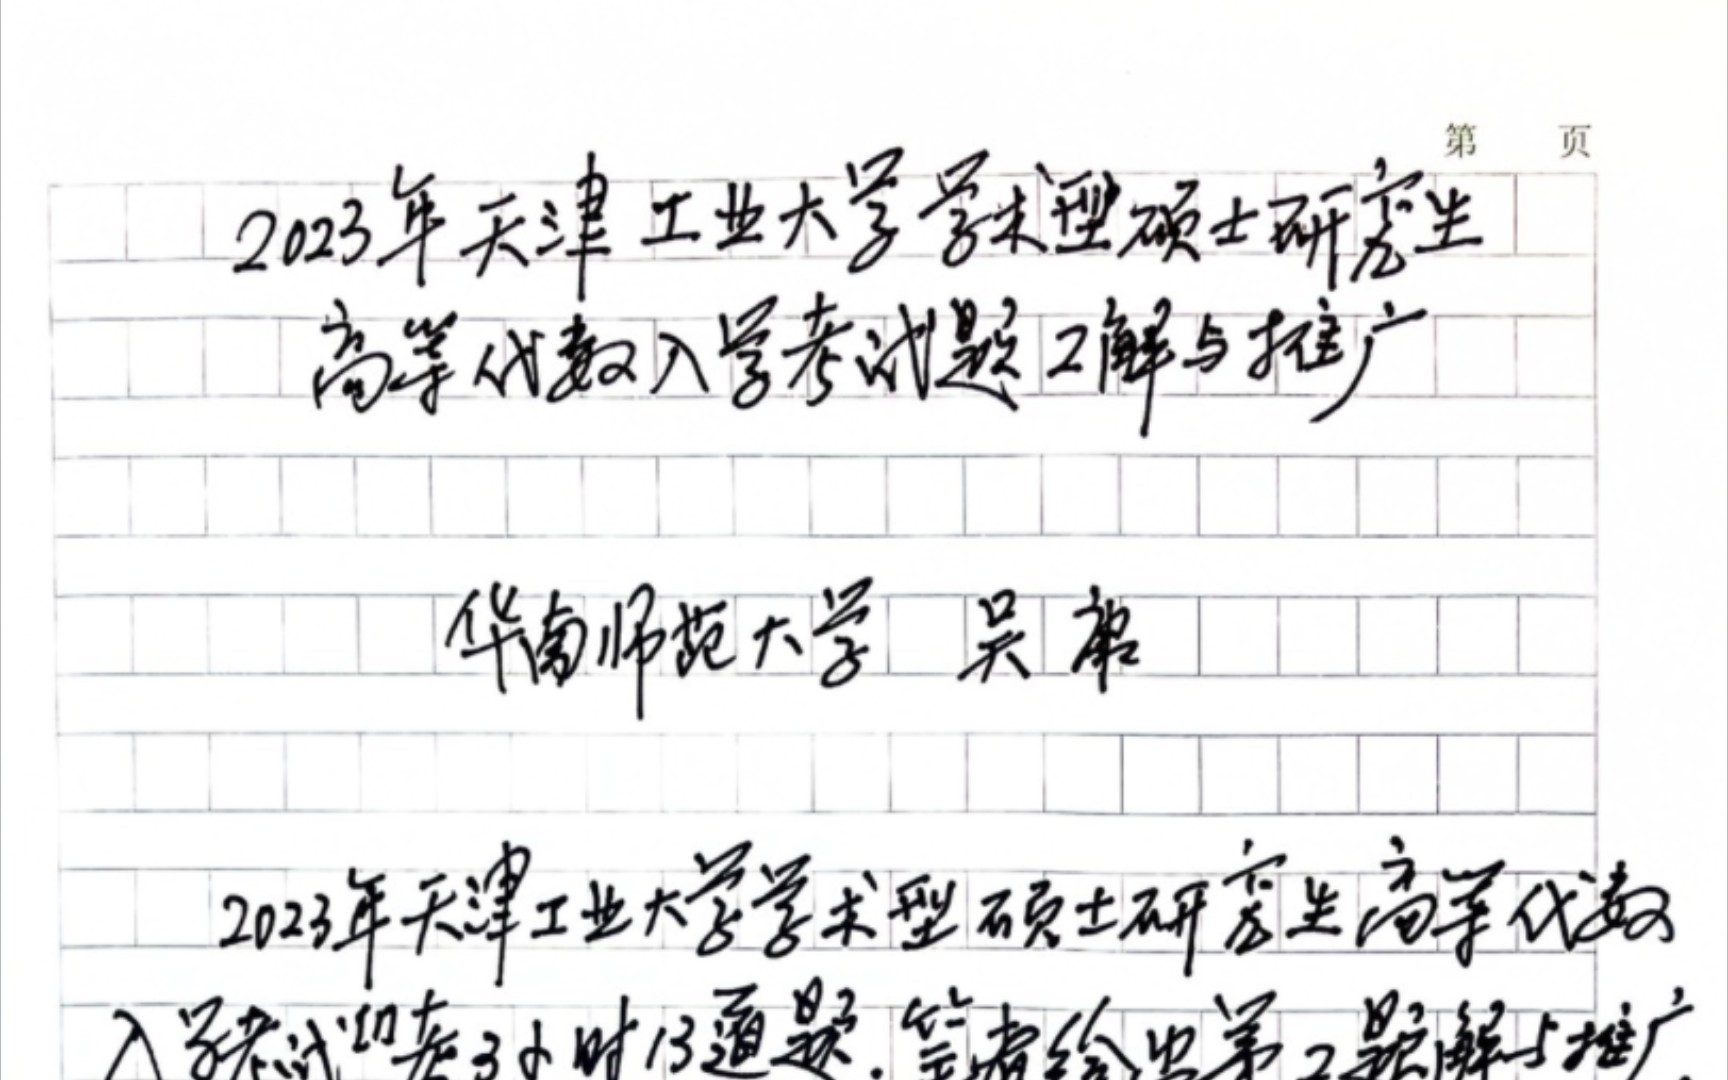 第 页
2023年天津工业大学学术型硕士研究生
高等代数入学考试题2解与推广
华南师范大学 吴
2023年天津工业大学学术型硕士研究生高等代数
入学考试 3小时13道题.笔者给出第2题解与推广.